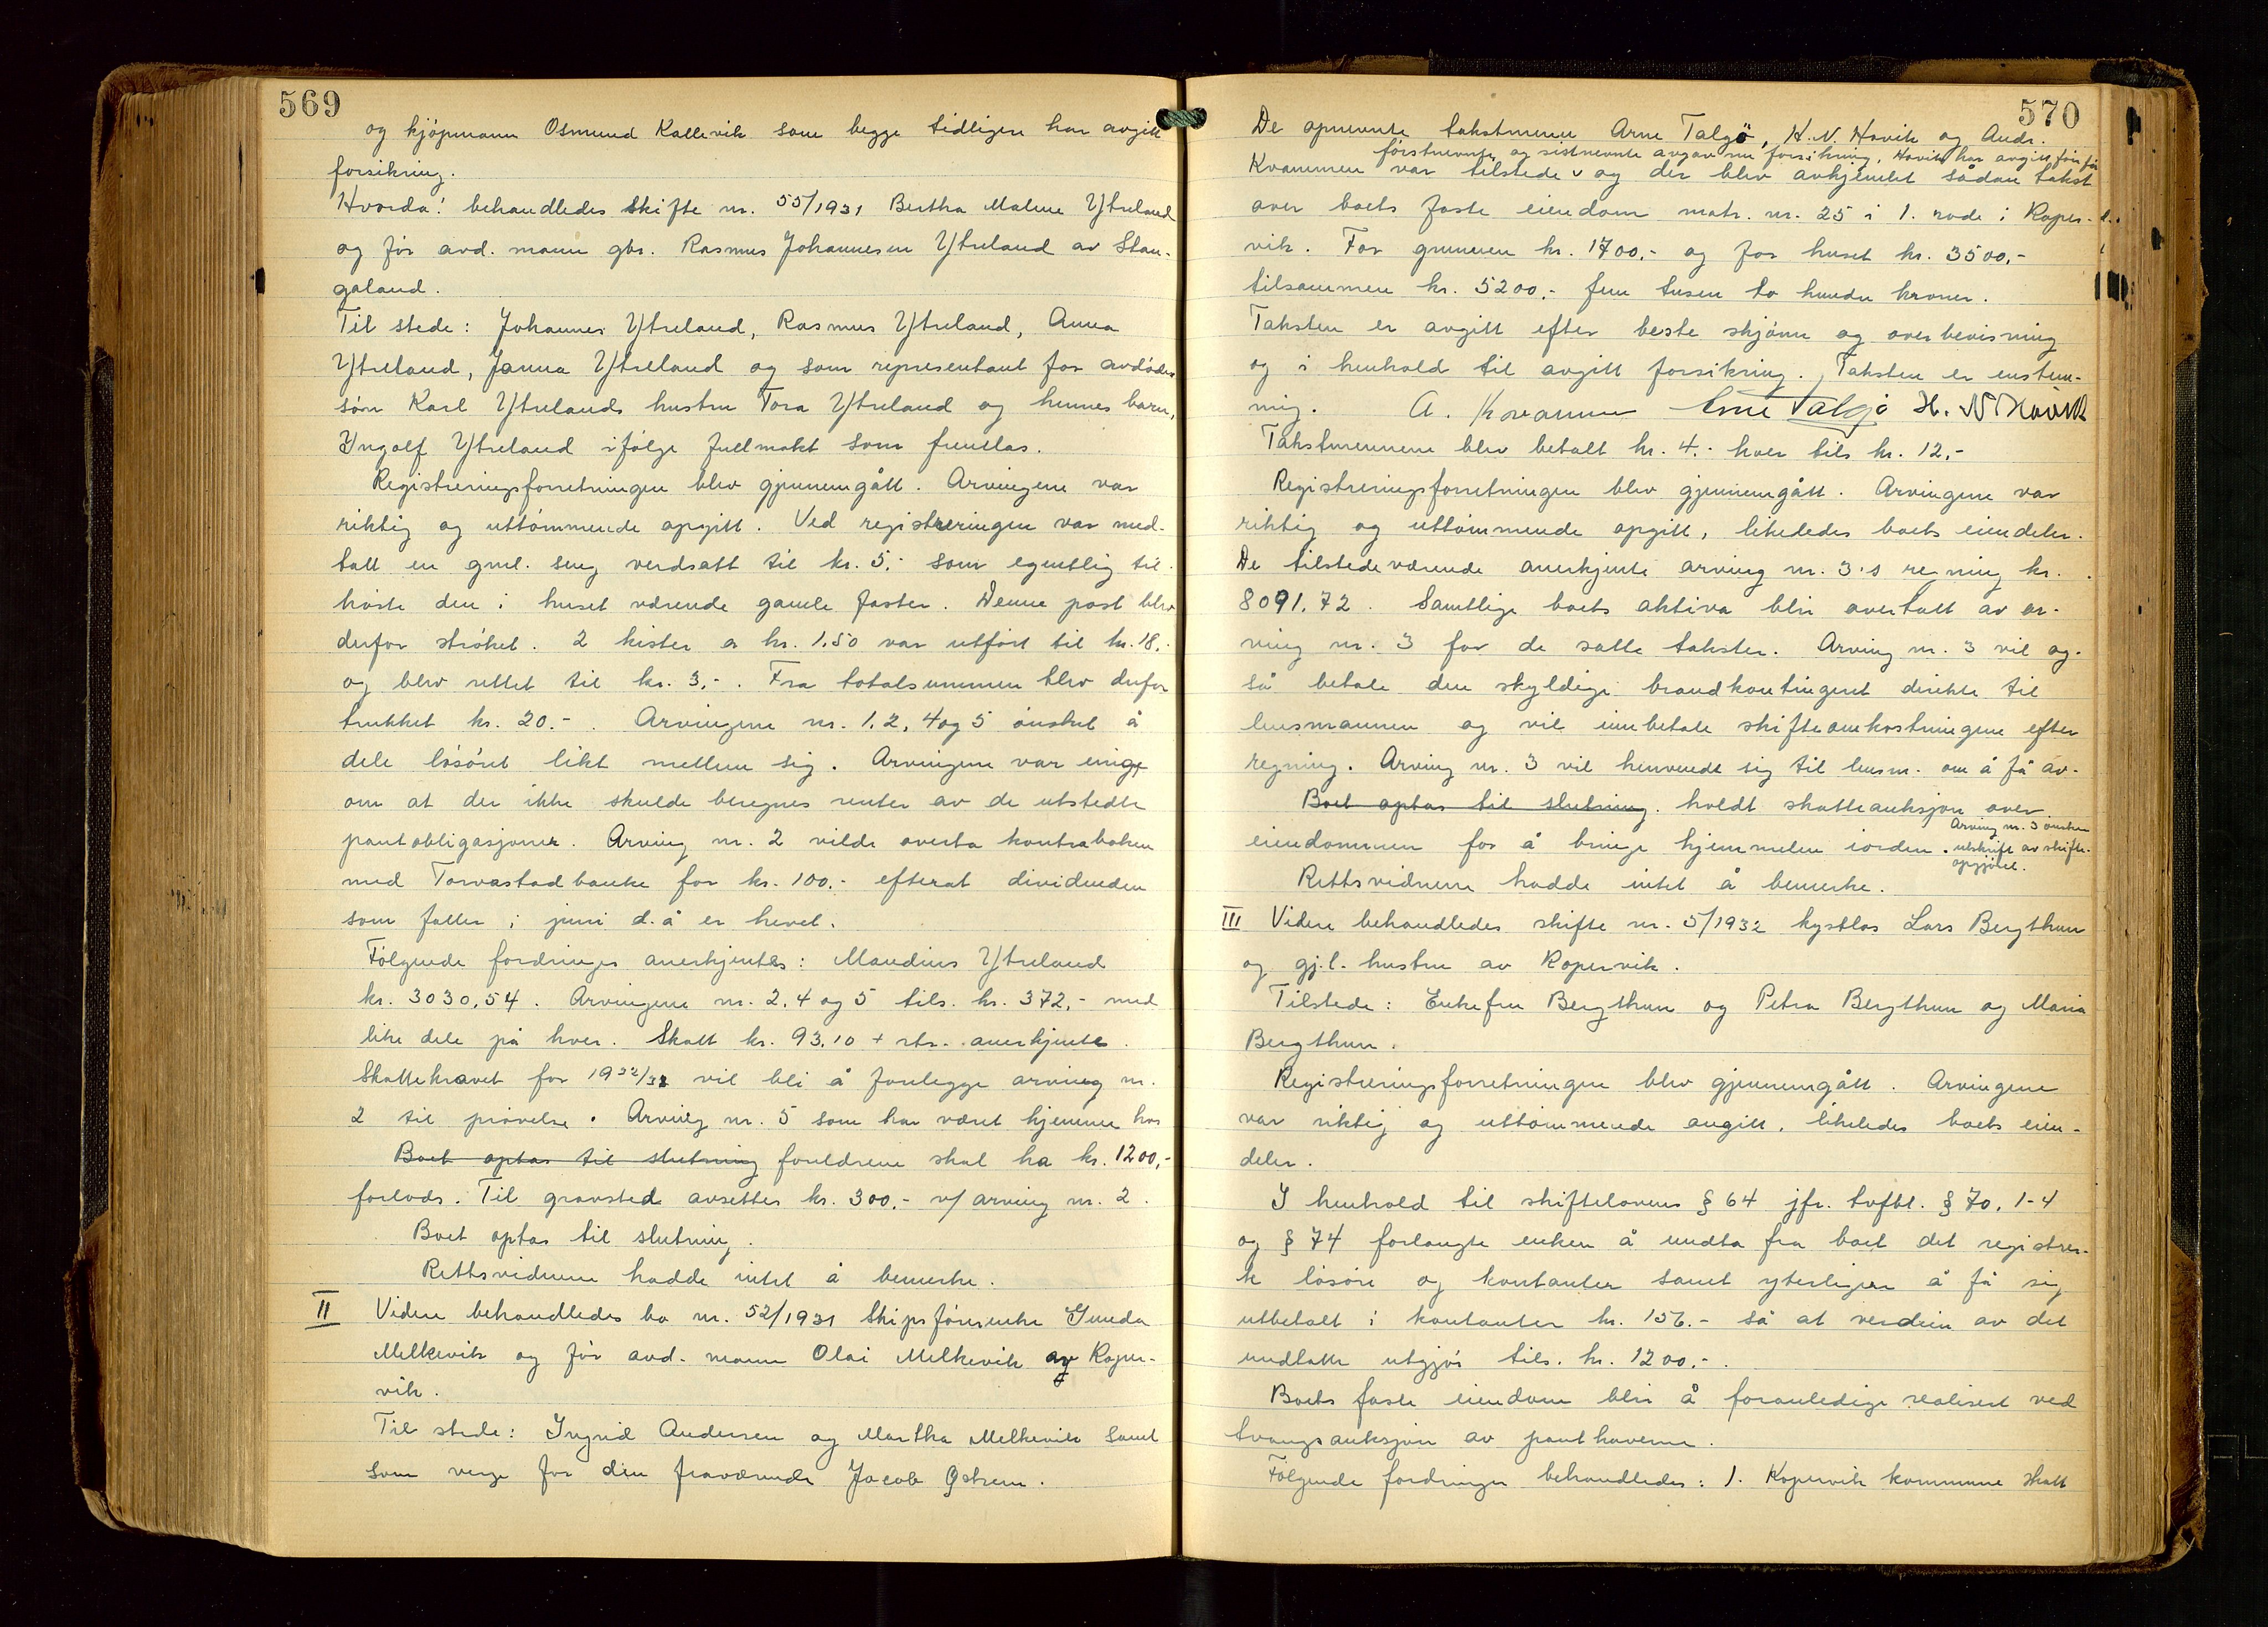 569
og kjøpmann Osmund Kallevik som begge tidligere har avgitt
forsikring.
Hvorda: behandledes Skifte nr. 55/1931 Bertha Malene Ytreland
og før avd. mann gbr. Rasmus Johannesen Ytreland av Stan-
galand.
Til stede: Johannes Ytreland, Rasmus Ytreland, Anna
Ytreland, Janna Ytreland og som representant for avdødes
sønn Karl Ytrelands hustru Tora Ytreland og hennes barn,
Yngolf Ytreland ifølge fullmakt som fremlas.
Registreringsforretningen blev gjennemgått. Arvingene var
riktig og uttømmende opgitt. Ved registreringen var med-
tatt en gml. seng verdsatt til kr. 5,- som egentlig til-
hørte den i huset værende gamle faster. Denne post blev
derfor strøket. 2 kister a kr. 1.50 var utført til kr. 18.-
og blev rettet til kr. 3.-. Fra totalsummen blev derfor
trukket kr. 20.-. Arvingene nr. 1, 2, 4 og 5 ønsket å
dele løsøret likt mellem sig. Arvingene var enige
om at der ikke skulde beregnes renter av de utstedte
pantobligasjoner. Arving nr. 2 vilde overta kontraboken
med Torvastad banke for kr. 100.- efterat dividenden
som faller i juni d.å er hevet.
Følgende fordringer anerkjentes: Maudius Ytreland
kr. 3030,54. Arvingene nr. 2, 4 og 5 tils. kr. 372,- med
like dele på hver. Skatt kr. 93,10 + rtr. anerkjente.
Skattekravet for 1932/33 vil bli å forelegge arving nr.
2 til prøvelse. Arving nr. 5 som har været hjemme hos
Boet optas til slutning foreldrene skal ha kr. 1200,-
forlods. Til gravsted avsettes kr. 300.- v/ arving nr. 2.
Boet optas til slutning.
Rettsvidnene hadde intet å bemerke.
II Videre behandledes bo nr. 52/1931 Skipsførerenke Gunda
Melkevik og før avd. mann Olai Melkevik av Koper-
vik.
Til stede: Ingrid Andersen og Martha Melkevik samt
som verge for den fraværende Jacob
570
De opnevnte takstmenn Arne Talgø, H. N. Hovik og Andr.
førstnevnte og sistnevnte avgav nu forsikring, Hovik har avgitt før
Kvammen var tilstede og der blev avhjemlet sådan takst
over boets faste eiendom matr. nr. 25 i 1. rode i Koper-
vik. For grunnen kr. 1700.- og for huset kr. 3500.-
tilsammen kr. 5200.- fem tusen to hundre kroner.
Taksten er avgitt efter beste skjønn og overbevisning
og i henhold til avgitt forsikring. Taksten er enstem-
mig. A. Kvammen Arne Talgø H. N Hovik
Takstmennene blev betalt kr. 4.- hver tils kr. 12.-
Registreringsforretningen blev gjennemgått. Arvingene var
riktig og uttømmende opgitt, likeledes boets eiendeler.
De tilstedeværende anerkjente arving nr. 3's regning kr.
8091.72. Samtlige boets aktiva blir overtatt av ar-
ving nr. 3 for de satte takster. Arving nr. 3 vil og-
så betale den skyldige brandkontingent direkte til
lensmannen og vil innbetale skifteomkostningene efter
regning. Arving nr. 3 vil henvende sig til lensm. om å få av-
Boet optas til slutning. holdt skatteauksjon over
eiendommen for å bringe hjemmelen iorden. Arving nr. 3 ønsker
utskrift av skifte-
opgjøret.
Rettsvidnene hadde intet å bemerke.
III Videre behandledes skifte nr. 5/1932 kystlos Lars Bergthun
og gj.l. hustru av Kopervik.
Tilstede: Enkefru Bergthun og Petra Bergthun og Maria
Bergthun.
Registreringsforretningen blev gjennemgått. Arvingene
var riktig og uttømmende angitt, likeledes boets eien-
deler.
I henhold til skiftelovens § 64 jfr. tvfbl. § 70, 1-4
og § 74 forlangte enken å undta fra boet det registrer-
te løsøre og kontanter samt yterligere å få sig
utbetalt i kontanter kr. 156.- så at verdien av det
undtatte utgjør tils. kr. 1200.-.
Boets faste eiendom blir å foranledige realisert ved
tvangsauksjon av panthaverne.
Følgende fordringer behandledes: 1. Kopervik kommune skatt